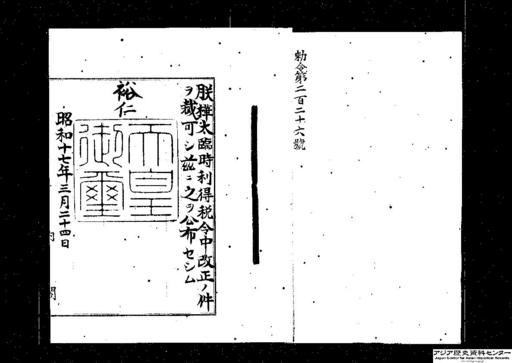 勅令第二百二十六號
朕樺太臨時利得税令中改正ノ件
ヲ裁可シ茲ニ之ヲ公布セシム
裕仁
天皇
御璽
昭和十七年三月二十四日
内閣
アジア歴史資料センター
Japan Center for Asian Historical Records